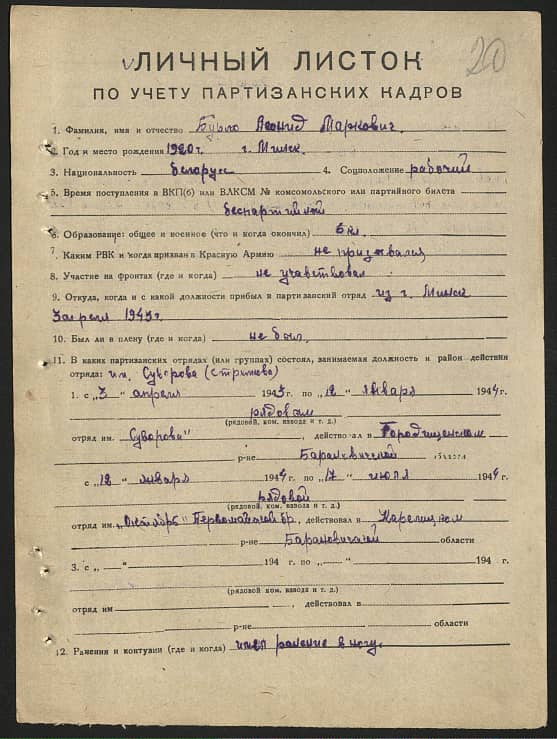 20
ЛИЧНЫЙ ЛИСТОК
ПО УЧЕТУ ПАРТИЗАНСКИХ КАДРОВ
1. Фамилия, имя и отчество Леонид Маркович.
2. Год и место рождения 1920 г. г. Минск.
3. Национальность белорус 4. Соцположение рабочий
5. Время поступления в ВКП(б) или ВЛКСМ № комсомольского или партийного билета
беспартийной
6. Образование: общее и военное (что и когда окончил) 6 кл.
7. Каким РВК и когда призван в Красную Армию не призывался
8. Участие на фронтах (где и когда) не учавствовал
9. Откуда, когда и с какой должности прибыл в партизанский отряд из г. Минск
3 апреля 1943 г.
10. Был ли в плену (где и когда) не был.
11. В каких партизанских отрядах (или группах) состоял, занимаемая должность и район действия
отряда: им. Суворова
1. с „3 " апреля 1943 г. по „12 " января 1944 г.
рядовой
(рядовой, ком. взвода и т. д.)
отряд им. Суворова" , действовал в Городищенском
р-не Барановичской области
с „12 " января 1944 г. по „17 " июля 1944 г.
рядовой
(рядовой, ком. взвода и т. д.)
отряд им. „Октябрь" Первомайской бр., действовал в Карелицком
р-не Барановичской области
3. с „ — " 194 г. по „ — " 194 г.
(рядовой, ком. взвода и т. д.)
отряд им , действовал в
р-не области
12. Ранения и контузии (где и когда) имел ранение в ногу.